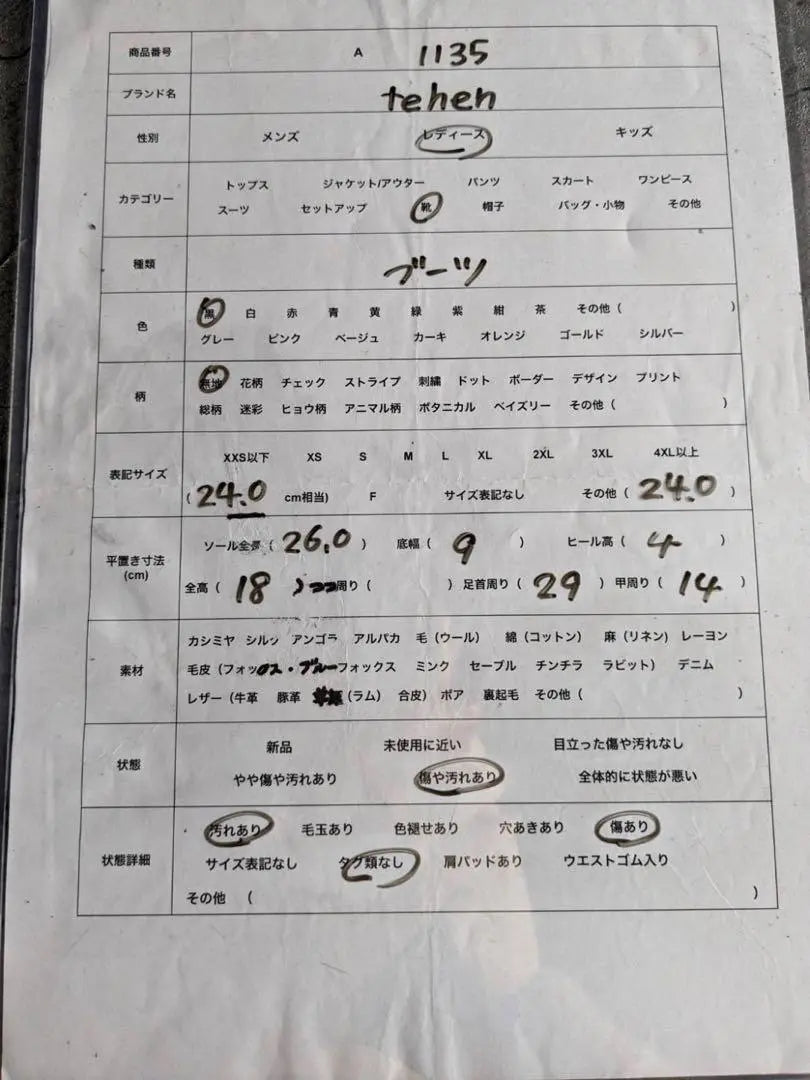 商品番号 A 1135
ブランド名 tehen
性別 メンズ レディース キッズ
カテゴリー トップス ジャケット/アウター パンツ スカート ワンピース
スーツ セットアップ 靴 帽子 バッグ・小物 その他
種類 ブーツ
色 黒 白 赤 青 黄 緑 紫 紺 茶 その他 ( )
グレー ピンク ベージュ カーキ オレンジ ゴールド シルバー
柄 無地 花柄 チェック ストライプ 刺繍 ドット ボーダー デザイン プリント
総柄 迷彩 ヒョウ柄 アニマル柄 ボタニカル ペイズリー その他 ( )
表記サイズ XXS以下 XS S M L XL 2XL 3XL 4XL以上
( 24.0 cm相当) F サイズ表記なし その他 ( 24.0 )
平置き寸法 (cm) ソール全長 ( 26.0 ) 底幅 ( 9 ) ヒール高 ( 4 )
全高 ( 18 ) 周り ( ) 足首周り ( 29 ) 甲周り ( 14 )
素材 カシミヤ シルク アンゴラ アルパカ 毛 (ウール) 綿 (コットン) 麻 (リネン) レーヨン
毛皮 (フォックス・ブルーフォックス ミンク セーブル チンチラ ラビット) デニム
レザー (牛革 豚革 (ラム) 合皮) ボア 裏起毛 その他 ( )
状態 新品 未使用に近い 目立った傷や汚れなし
やや傷や汚れあり 傷や汚れあり 全体的に状態が悪い
状態詳細 汚れあり 毛玉あり 色褪せあり 穴あきあり 傷あり
サイズ表記なし タグ類なし 肩パッドあり ウエストゴム入り
その他 ( )